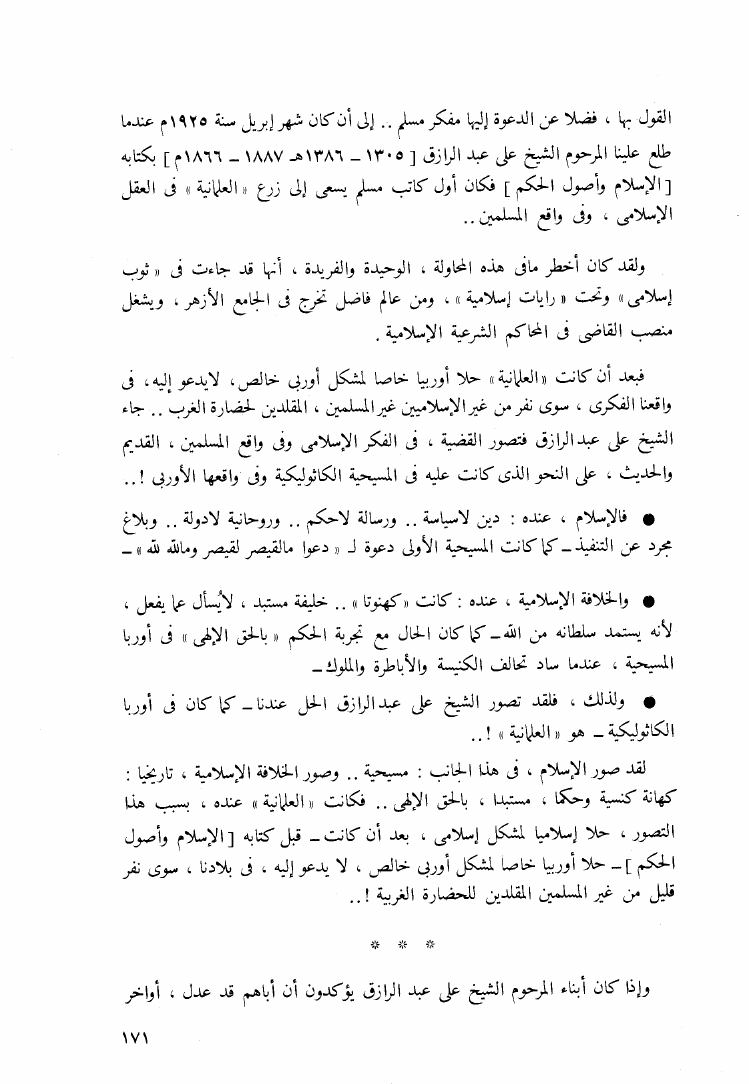 القول بها ، فضلا عن الدعوة إليها مفكر مسلم .. إلى أن كان شهر إبريل سنة ١٩٢٥م عندما
طلع علينا المرحوم الشيخ على عبد الرازق [ ١٣٠٥ ــ ١٣٨٦هـ ١٨٨٧ ــ ١٨٦٦م ] بكتابه
[ الإسلام وأصول الحكم ] فكان أول كاتب مسلم يسعى إلى زرع « العلمانية » فى العقل
الإسلامى ، وفى واقع المسلمين ..
ولقد كان أخطر مافى هذه المحاولة ، الوحيدة والفريدة ، أنها قد جاءت فى « ثوب
إسلامى » وتحت « رايات إسلامية » ، ومن عالم فاضل تخرج فى الجامع الأزهر ، ويشغل
منصب القاضى فى المحاكم الشرعية الإسلامية .
فبعد أن كانت «العلمانية» حلا أوربيا خاصا لمشكل أوربى خالص، لايدعو إليه، فى
واقعنا الفكرى ، سوى نفر من غير الإسلاميين غير المسلمين ، المقلدين لحضارة الغرب .. جاء
الشيخ على عبد الرازق فتصور القضية ، فى الفكر الإسلامى وفى واقع المسلمين ، القديم
والحديث ، على النحو الذى كانت عليه فى المسيحية الكاثوليكية وفى واقعها الأوربى !..
● فالإسلام ، عنده : دين لاسياسة .. ورسالة لاحكم .. وروحانية لادولة .. وبلاغ
مجرد عن التنفيذ ــ كما كانت المسيحية الأولى دعوة لـ « دعوا مالقيصر لقيصر ومالله لله » ــ
● والخلافة الإسلامية ، عنده : كانت «كهنوتا» .. خليفة مستبد ، لايُسأل عما يفعل ،
لأنه يستمد سلطانه من الله ــ كما كان الحال مع تجربة الحكم « بالحق الإلهى » فى أوربا
المسيحية ، عندما ساد تحالف الكنيسة والأباطرة والملوك ــ
● ولذلك ، فلقد تصور الشيخ على عبد الرازق الحل عندنا ــ كما كان فى أوربا
الكاثوليكية ــ هو « العلمانية » !..
لقد صور الإسلام ، فى هذا الجانب : مسيحية .. وصور الخلافة الإسلامية ، تاريخيا :
كهانة كنسية وحكما ، مستبدا ، بالحق الإلهى .. فكانت « العلمانية » عنده ، بسبب هذا
التصور ، حلا إسلاميا لمشكل إسلامى ، بعد أن كانت ــ قبل كتابه [ الإسلام وأصول
الحكم ] ــ حلا أوربيا خاصا لمشكل أوربى خالص ، لا يدعو إليه ، فى بلادنا ، سوى نفر
قليل من غير المسلمين المقلدين للحضارة الغربية !..
* * *
وإذا كان أبناء المرحوم الشيخ على عبد الرازق يؤكدون أن أباهم قد عدل ، أواخر
١٧١